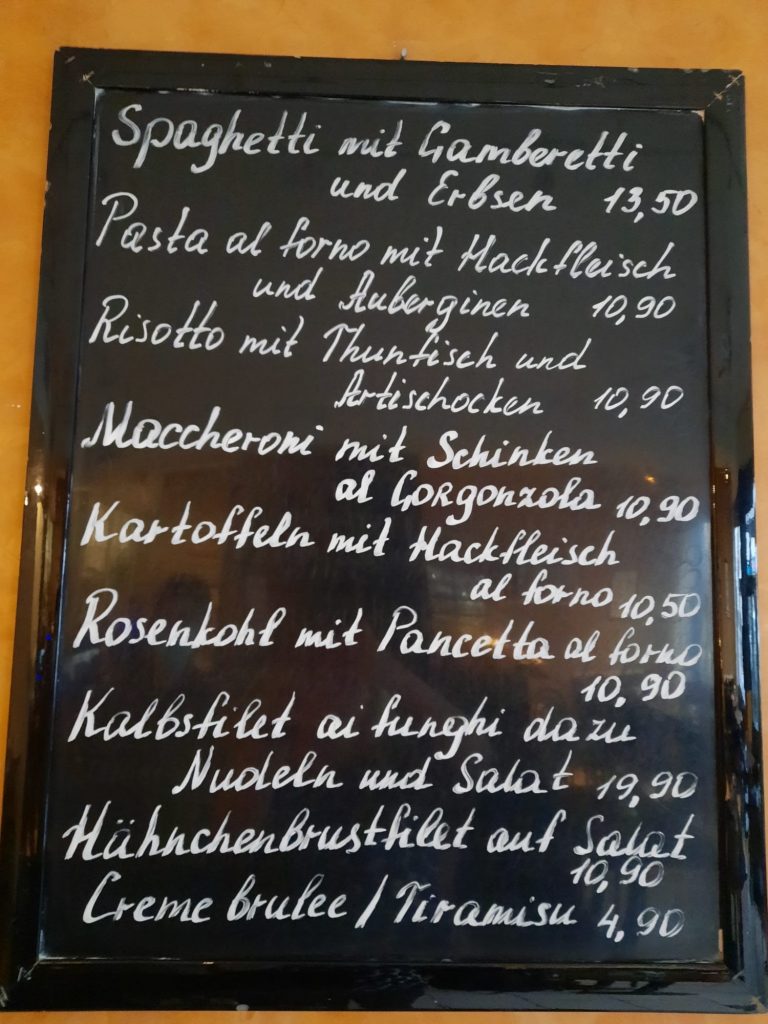 Spaghetti mit Gamberetti
und Erbsen 13,50
Pasta al forno mit Hackfleisch
und Auberginen 10,90
Risotto mit Thunfisch und
Artischocken 10,90
Maccheroni mit Schinken
al Gorgonzola 10,90
Kartoffeln mit Hackfleisch
al forno 10,50
Rosenkohl mit Pancetta al forno
10,90
Kalbsfilet ai funghi dazu
Nudeln und Salat 19,90
Hähnchenbrustfilet auf Salat
10,90
Creme brulee / Tiramisu 4,90